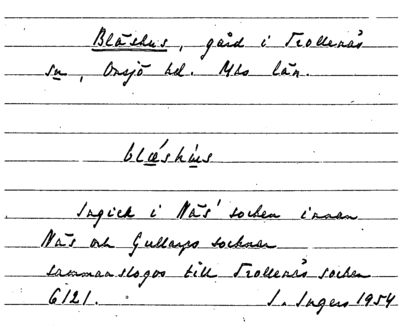 Blåshus, gård i Trollenäs
sn, Onsjö hd. Mhs län.
blǽshu̇s
Ingick i Näs' socken innan
Näs och Gullarps socknar
sammanslogos till Trollenäs socken
6121. I. Ingers 1954